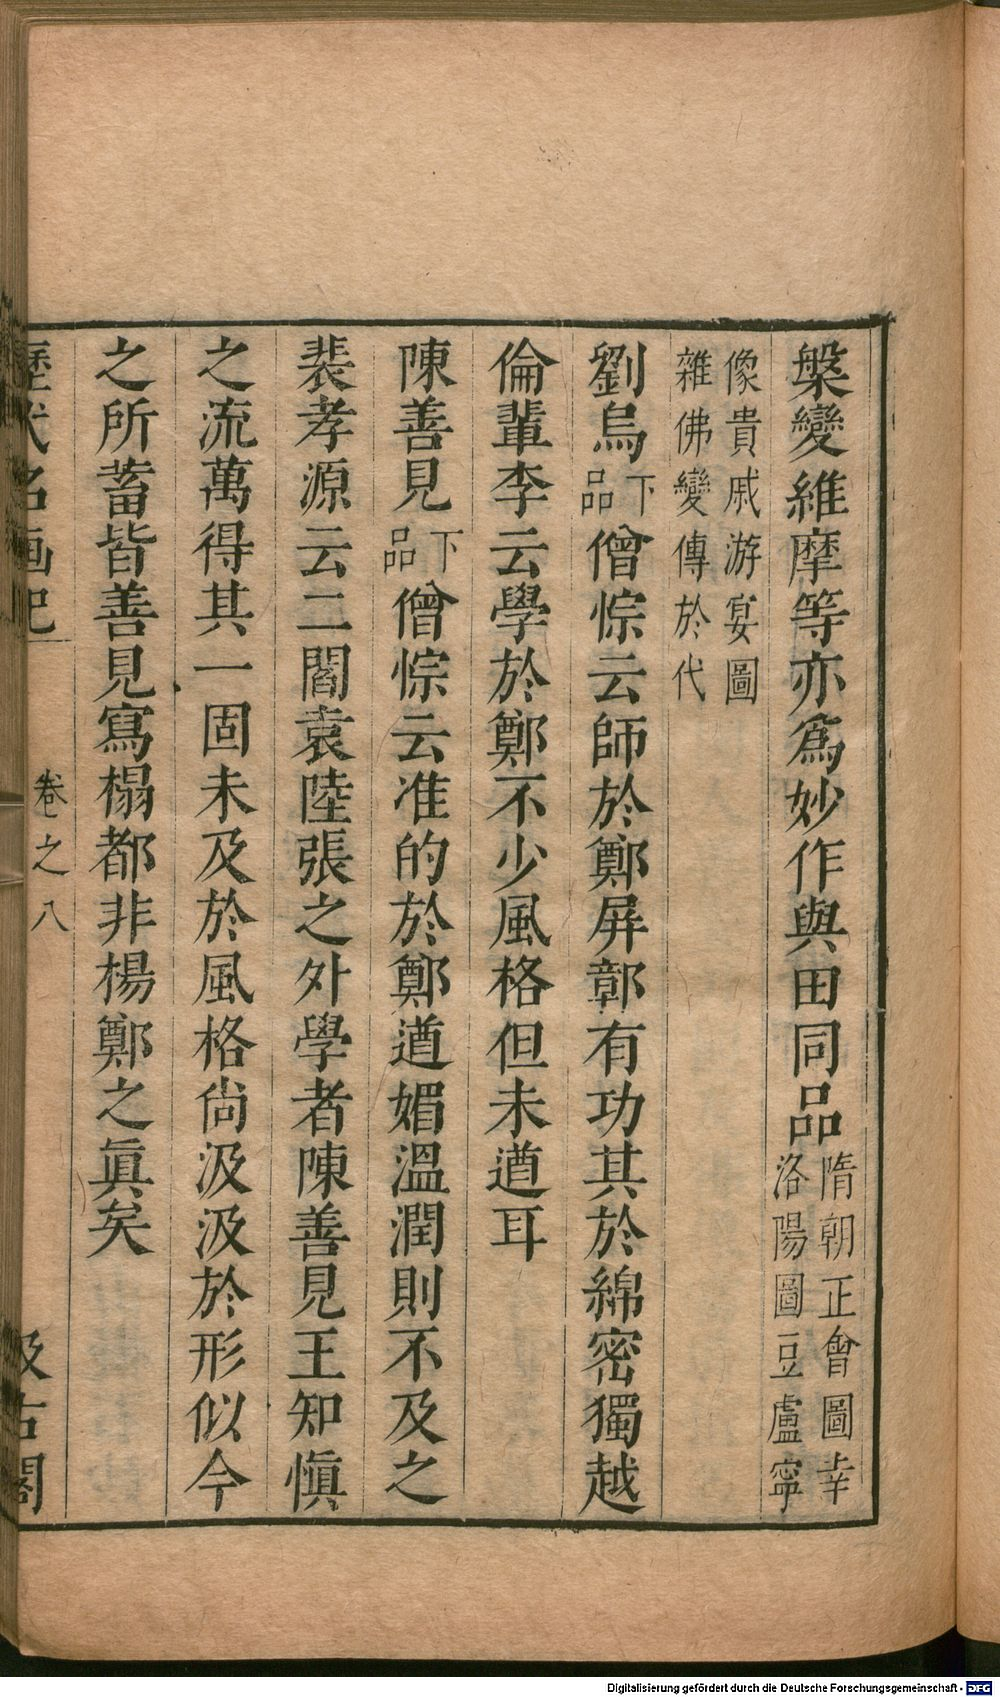 槃變維摩等亦爲妙作與田同品隋朝正會圖幸洛陽圖豆盧寧
像貴戚游宴圖雜佛變傳於代
劉烏下品僧悰云師於鄭屛鄣有功其於綿密獨越
倫輩李云學於鄭不少風格但未遒耳
陳善見下品僧悰云准的於鄭遒媚溫潤則不及之
裴孝源云二閻袁陸張之外學者陳善見王知愼
之流萬得其一固未及於風格尙汲汲於形似今
之所蓄皆善見寫榻都非楊鄭之眞矣
歷代名画記 卷之八 汲古閣
Digitalisierung gefördert durch die Deutsche Forschungsgemeinschaft - DFG